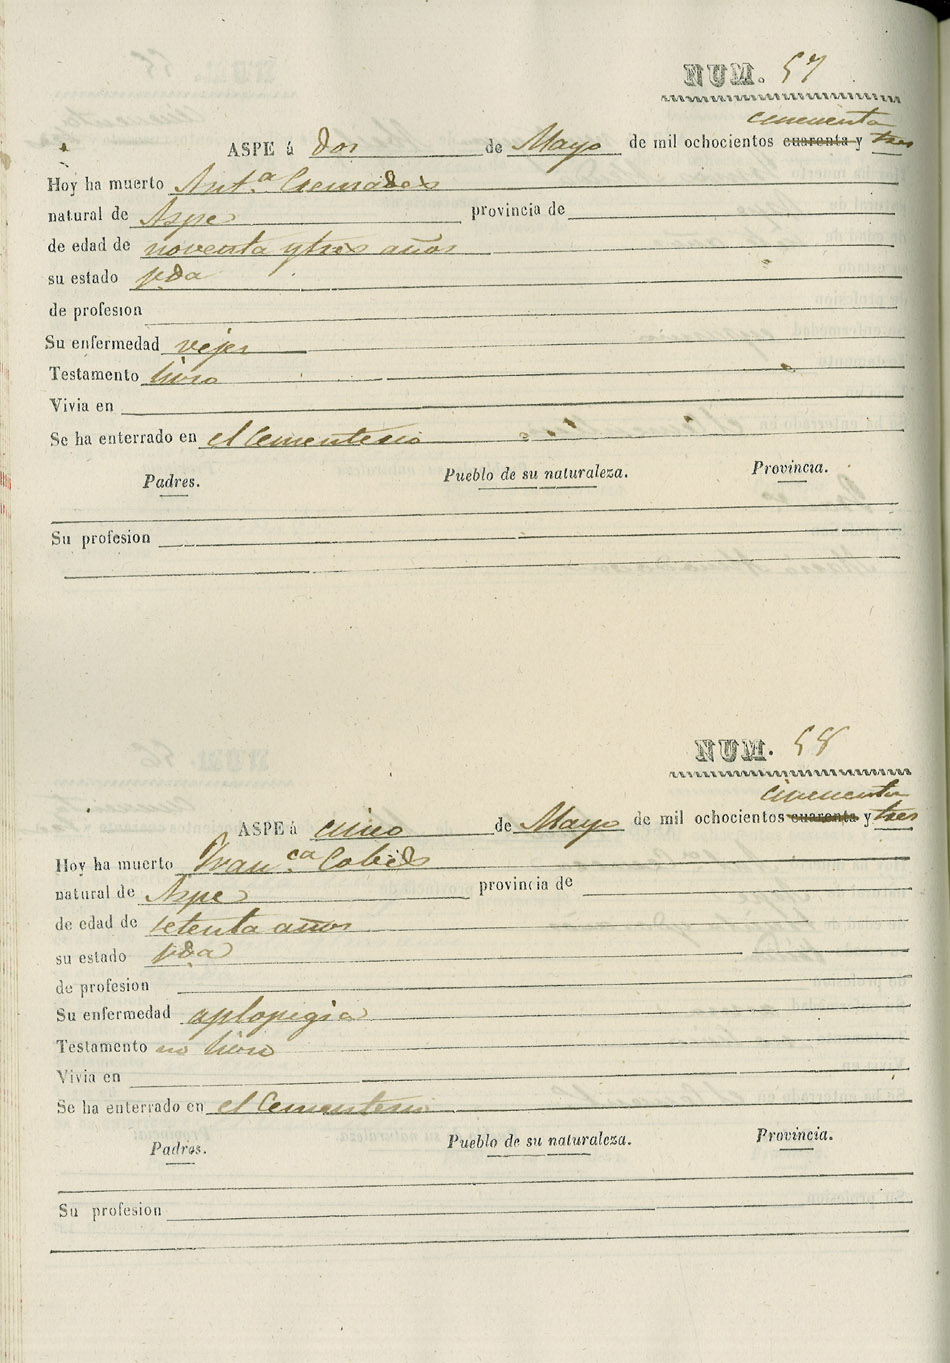 NUM. 57
cincuenta
ASPE á dos de Mayo de mil ochocientos cuarenta y tres
Hoy ha muerto Ant.ª Cremades
natural de Aspe provincia de
de edad de noventa y tres años
su estado vda
de profesion
Su enfermedad vejez
Testamento hizo
Vivia en
Se ha enterrado en el Cementerio
Padres. Pueblo de su naturaleza. Provincia.
Su profesion
NUM. 58
cincuenta
ASPE á cinco de Mayo de mil ochocientos cuarenta y tres
Hoy ha muerto Fran.ca
natural de Aspe provincia de
de edad de setenta años
su estado vda
de profesion
Su enfermedad aplopegia
Testamento no hizo
Vivia en
Se ha enterrado en el Cementerio
Padres. Pueblo de su naturaleza. Provincia.
Su profesion